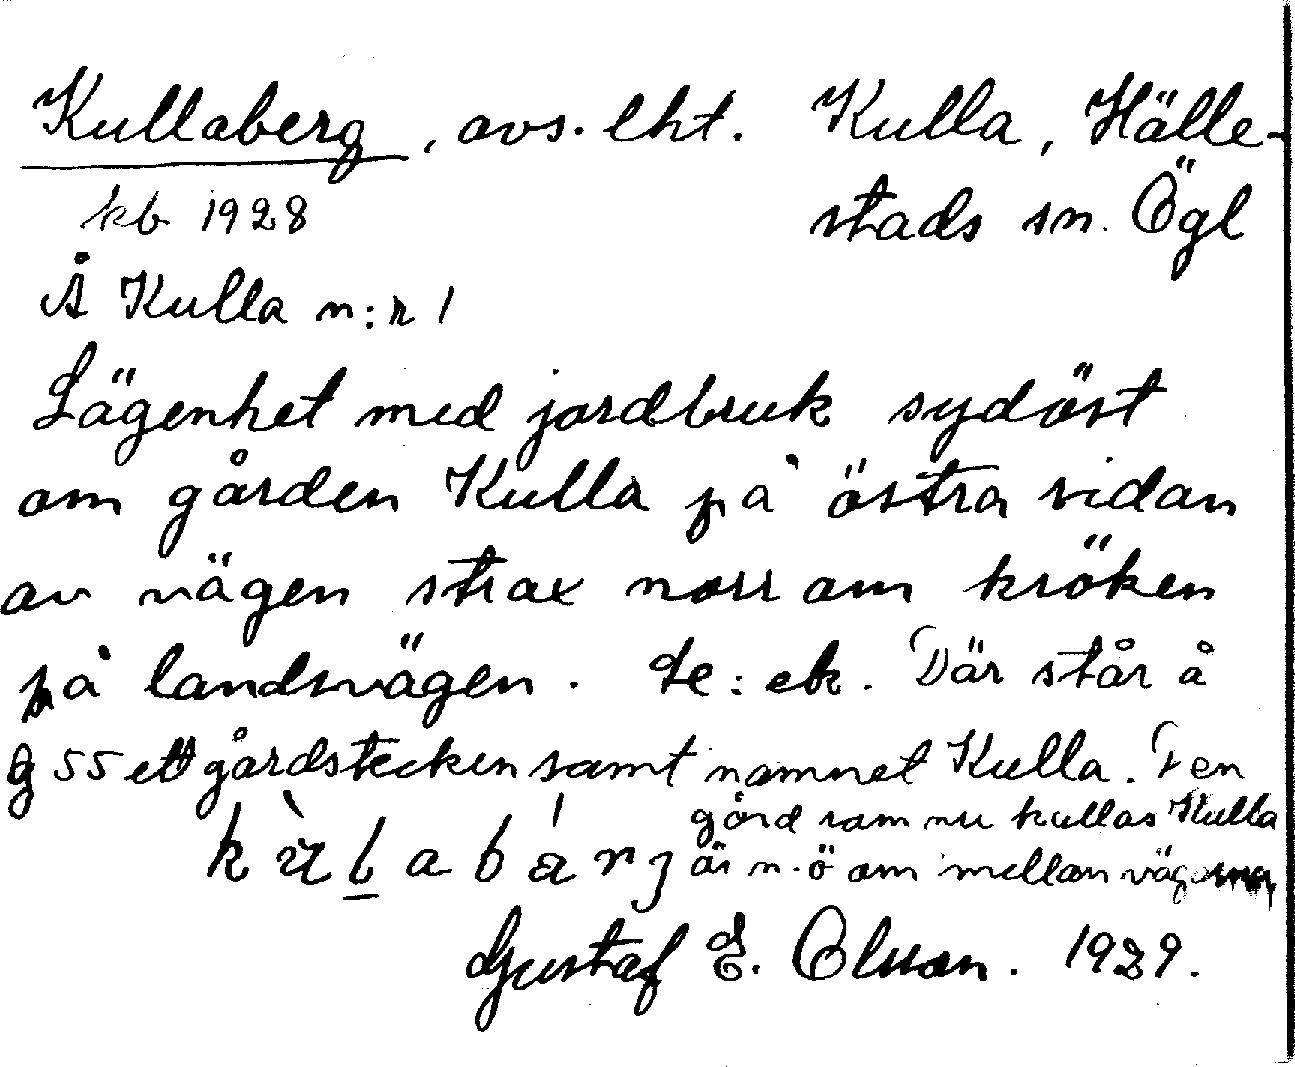 Kullaberg, avs. lht. Kulla, Hälle-
kb 1928 stads sn. Ögl
Å Kulla n:r 1
Lägenhet med jordbruk sydöst
om gården Kulla på östra sidan
av vägen strax norr om kröken
på landsvägen. Ie: ek. Där står å
g 55 ett gårdstecken samt namnet Kulla. Den
gård som nu kallas Kulla
är n.ö om mellan vägarna
Gustaf E. Olsson. 1929.